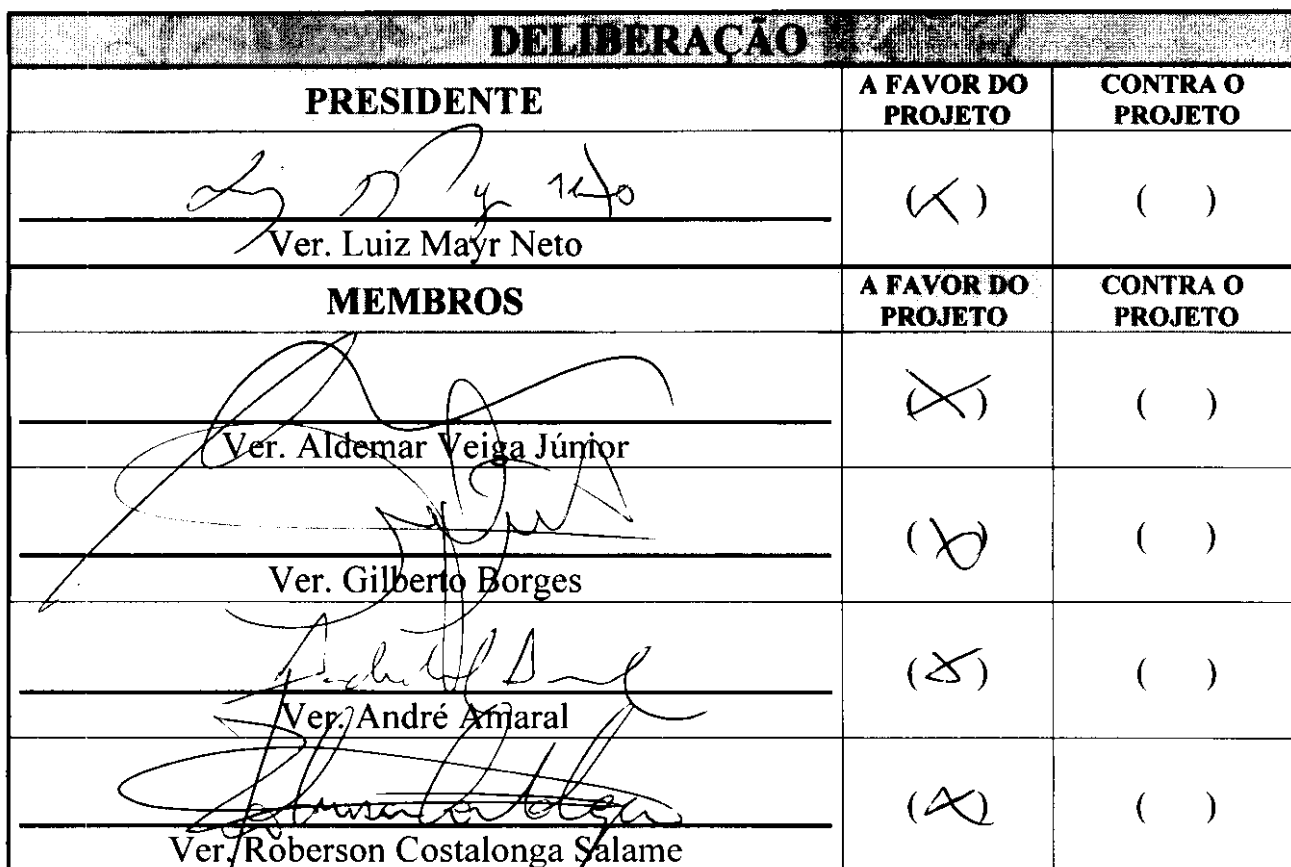 DELIBERAÇÃO
PRESIDENTE
A FAVOR DO PROJETO
CONTRA O PROJETO
(X) ( )
Ver. Luiz Mayr Neto
MEMBROS
A FAVOR DO PROJETO
CONTRA O PROJETO
(X) ( )
Ver. Aldemar Veiga Júnior
(X) ( )
Ver. Gilberto Borges
(X) ( )
Ver. André Amaral
(X) ( )
Ver. Roberson Costalonga Salame